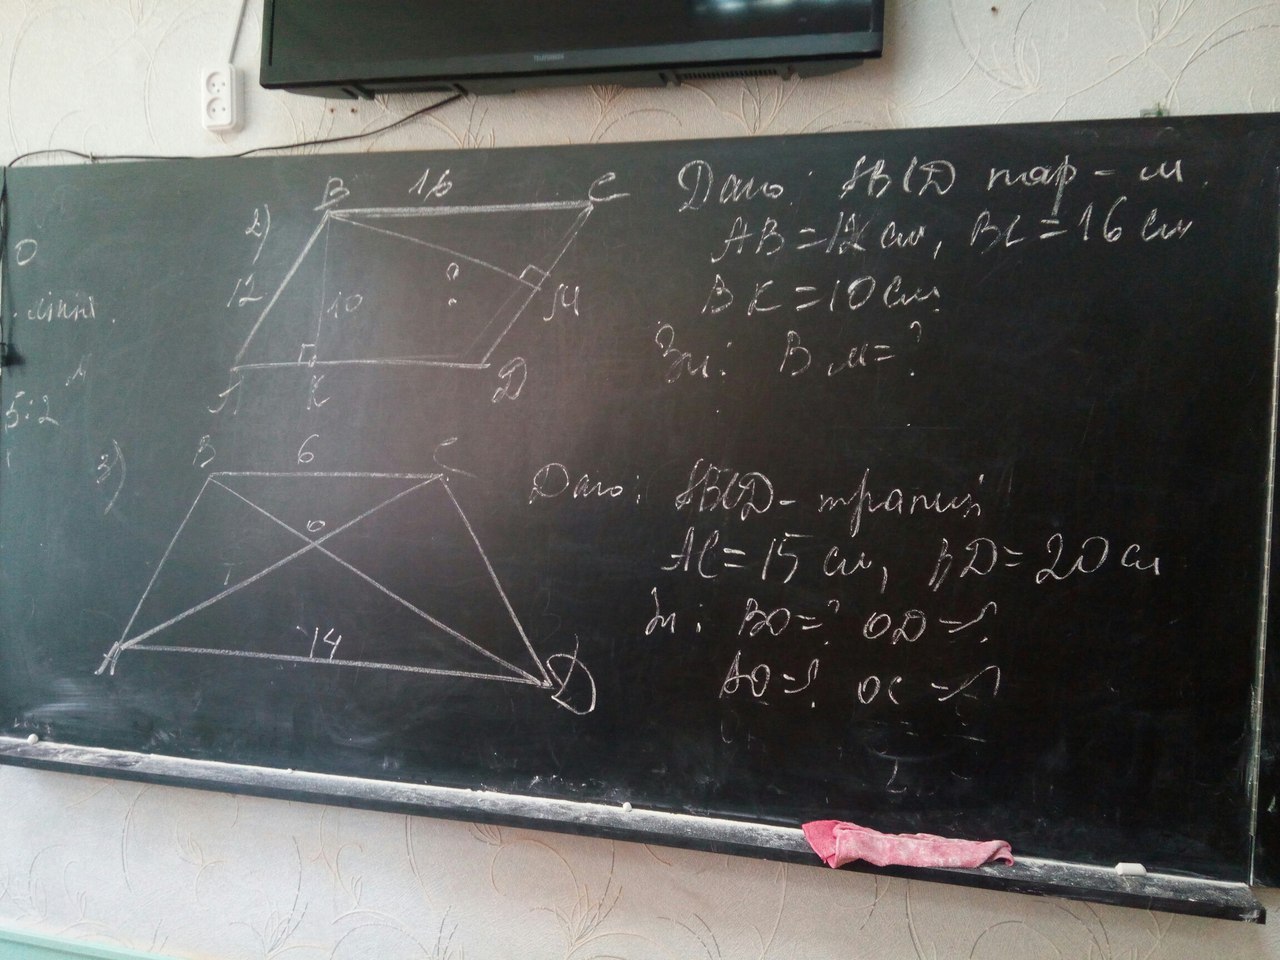 TELEFUNKEN
О
лінія.
5:2
2)
B 16 C
12 10 ? M
A K D
Дано: ABCD пар-м.
AB=12 см, BC=16 см
BK=10см.
Зн: BM=?
3)
B 6 C
O
A 14 D
Дано: ABCD-трапец
AC=15 см, BD=20 см
Зн: BO=? OD=?
AO=? OC=?